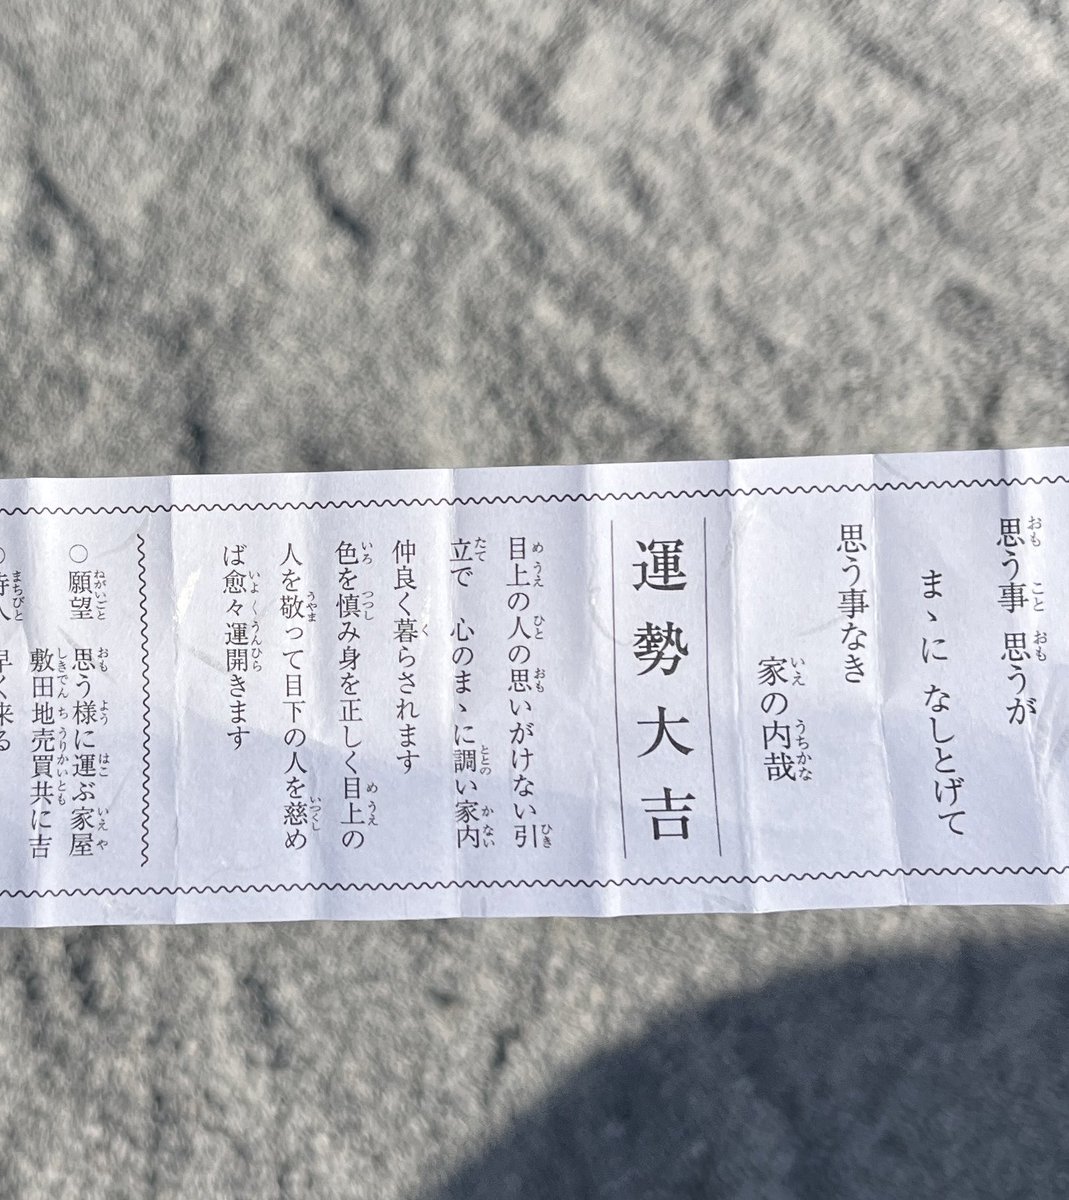 思う事 思うが
まゝに なしとげて
思う事なき
家の内哉
運勢大吉
目上の人の思いがけない引
立で 心のまゝに調い家内
仲良く暮らされます
色を慎み身を正しく目上の
人を敬って目下の人を慈め
ば愈々運開きます
○願望 思う様に運ぶ家屋
敷田地売買共に吉
○待人 早く来る